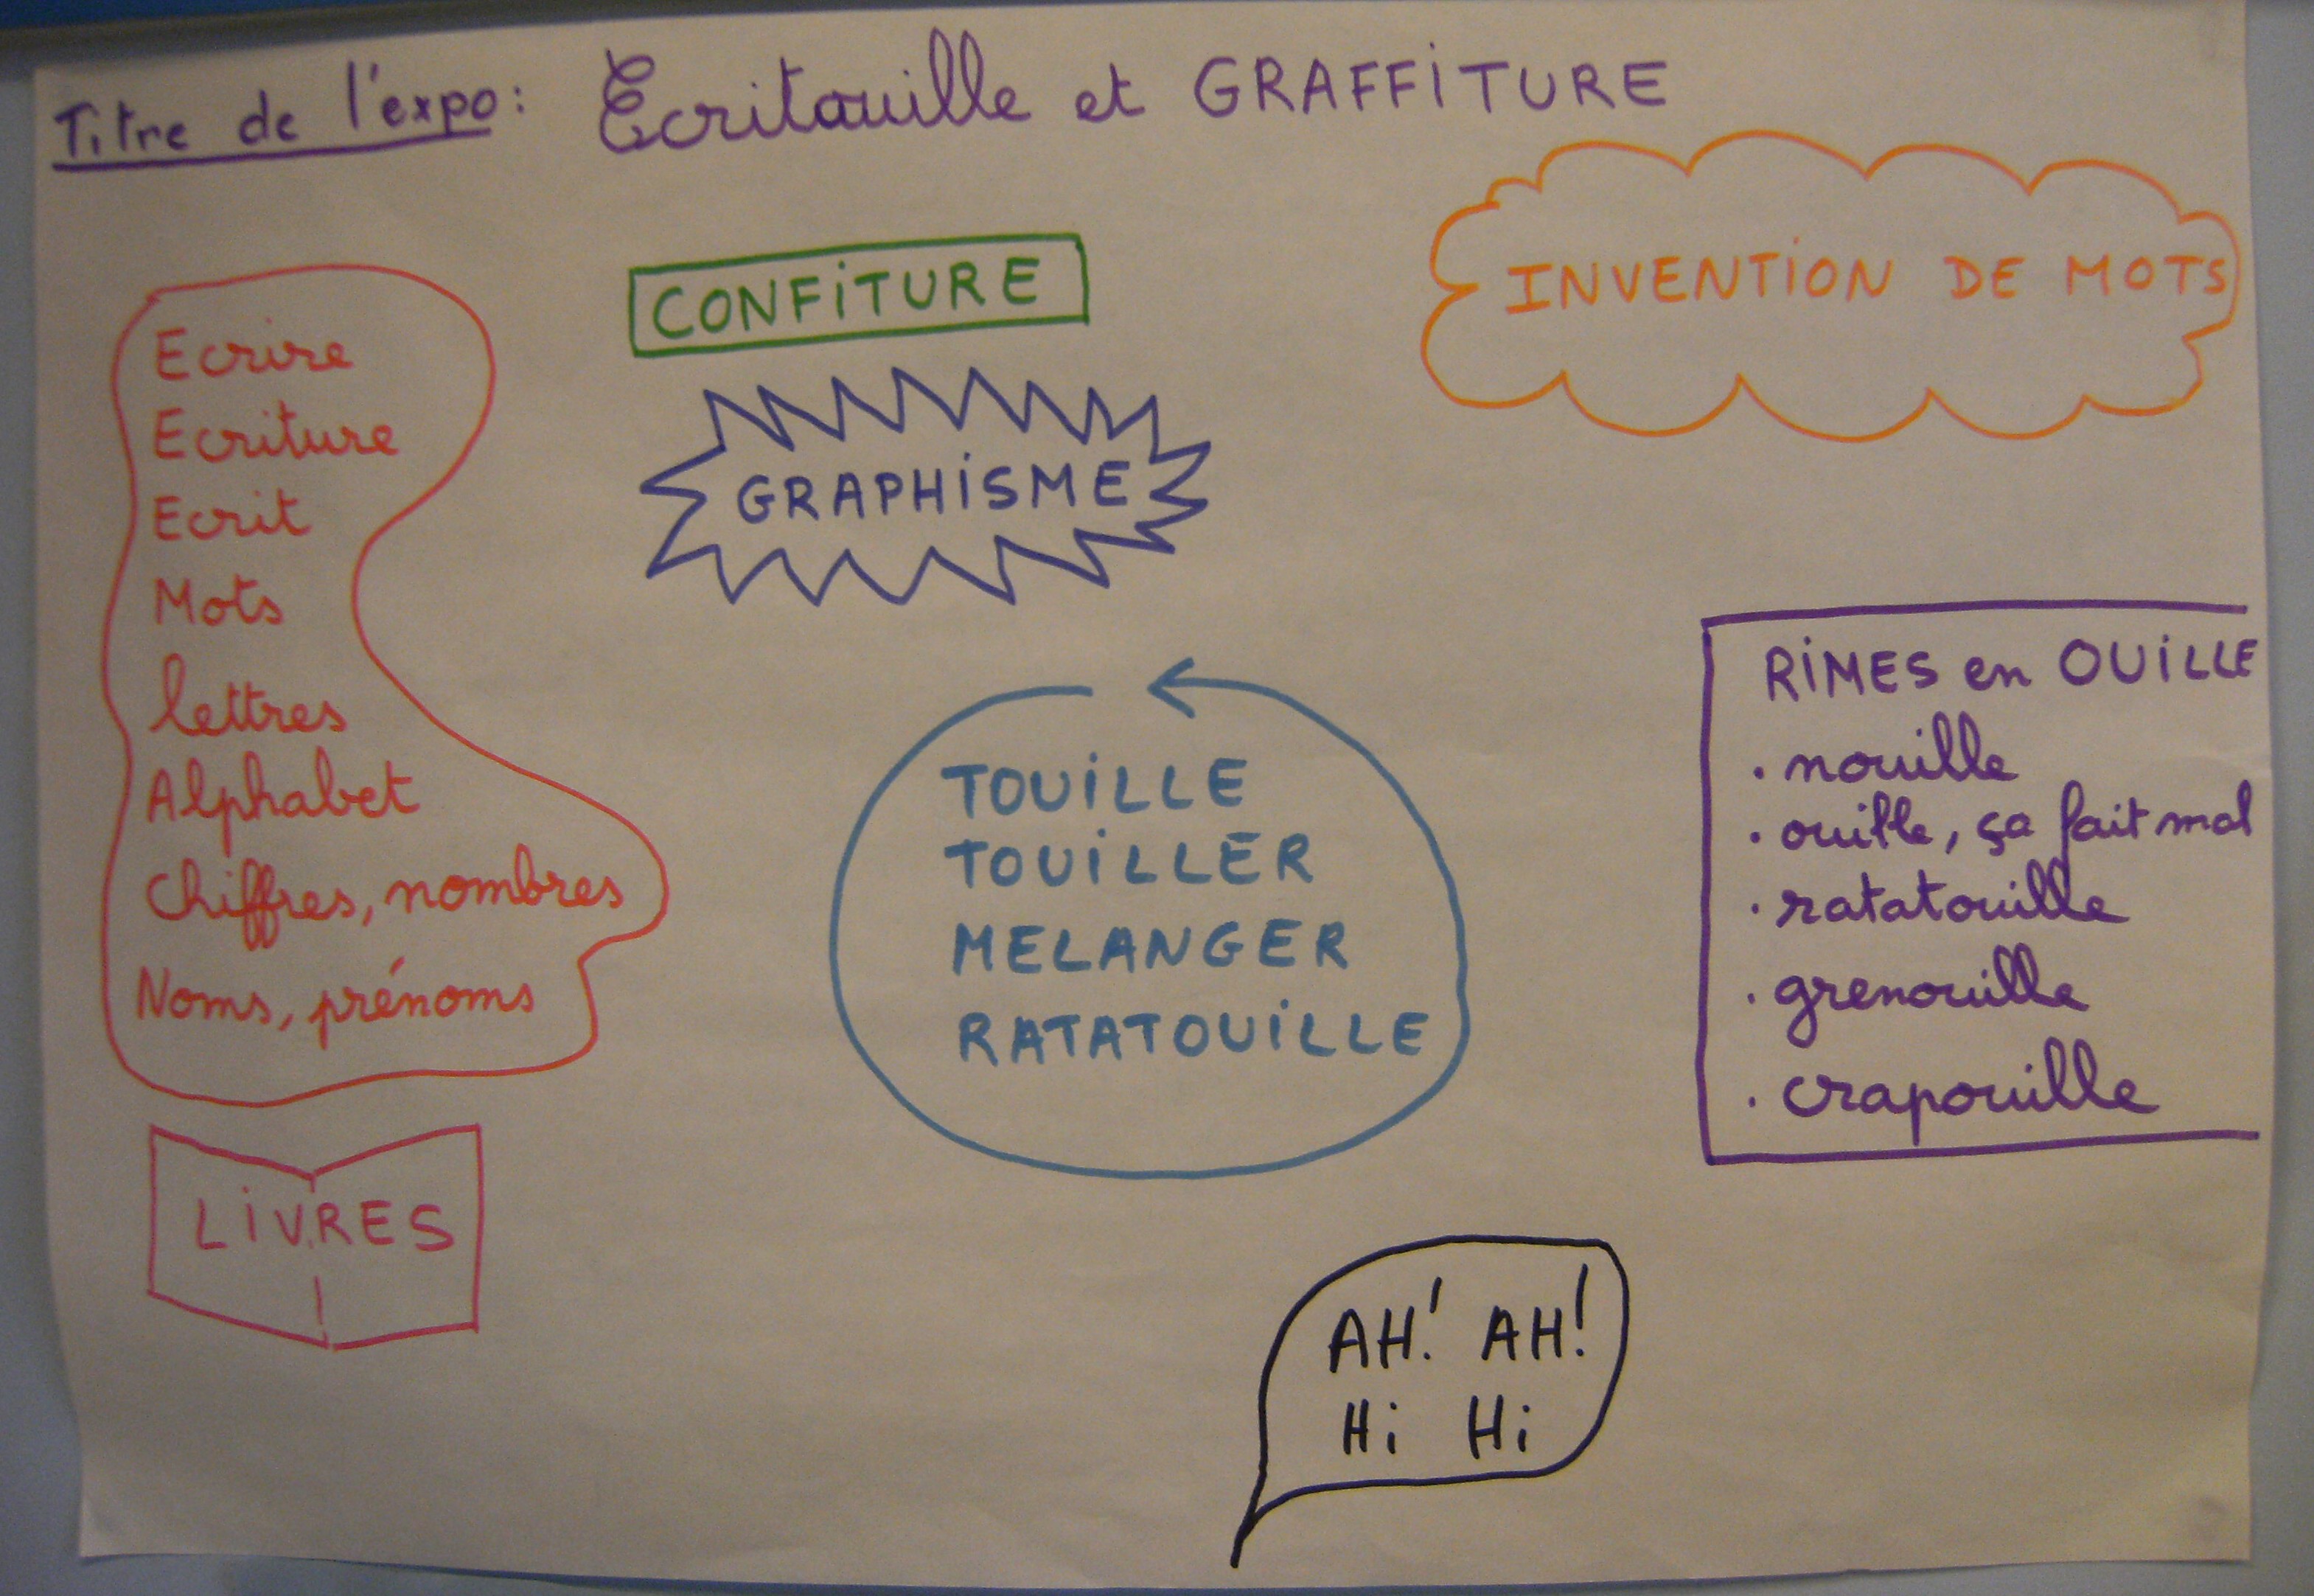 Titre de l'expo : Ecritouille et GRAFFiTURE
CONFiTURE
INVENTiON DE MOTS
Ecrire
Ecriture
Ecrit
Mots
lettres
Alphabet
Chiffres, nombres
Noms, prénoms
GRAPHiSME
TOUiLLE
TOUiLLER
MELANGER
RATATOUiLLE
RiMES en OUiLLE
. nouille
. ouille, ça fait mal
. ratatouille
. grenouille
. crapouille
LiVRES
AH! AH!
Hi Hi